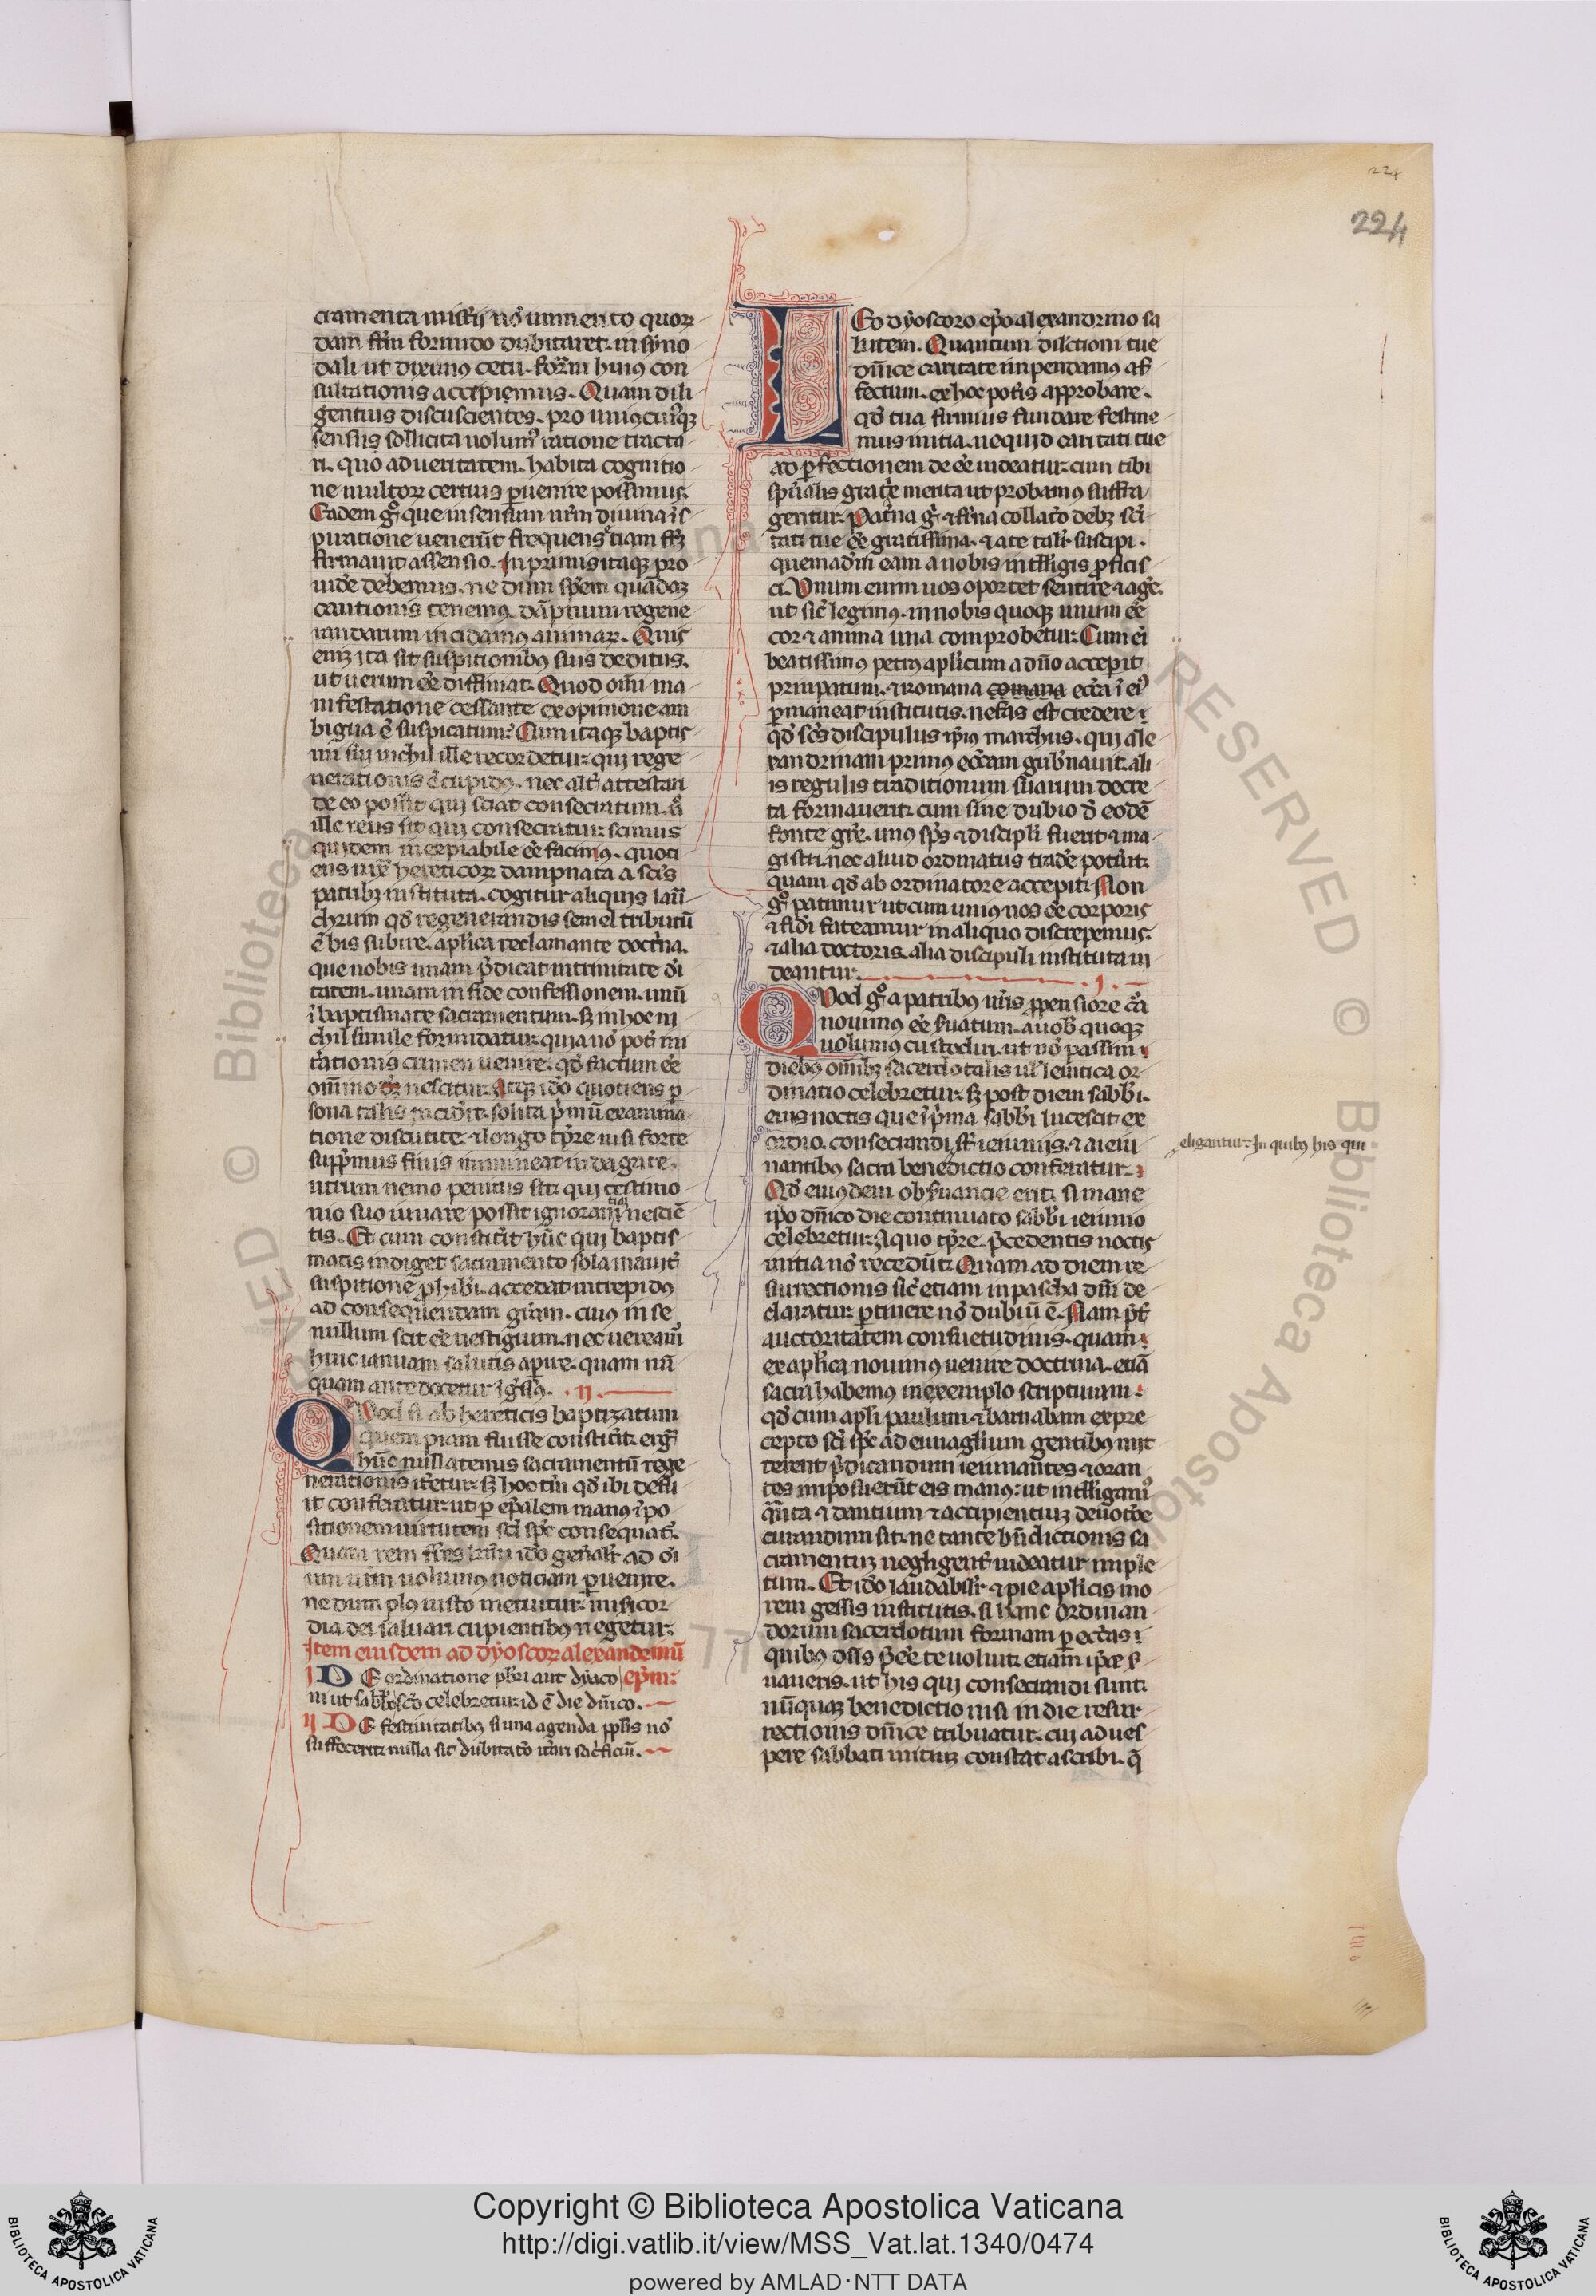 224
224
cramenta mistɼij nō inmento quoꝝ
dam frm̄ formido dubitaret. in syno
dali ut diximꝰ cetu. formā huiꝰ con
sultationis accepimus. Quam dili
gentius discuscientes. pro uniꝰcuiꝰqꝫ
sensus sollicita uolumꝰ ratione tracta
ri. quo ad ueritatem. habita cognitio
ne multoꝝ certius ꝑuenire possimus.
Eadem gͦ que in sensum nr̄m diuina is
piratione uenerūt frequens etiam frꝫ
firmauit assensio. In primis itaqꝫ pro
uide debemus. ne dum spēm quādaꝫ
cautionis tenemꝰ. dāpnum regene
randarum incidamꝰ animaꝝ. Quis
enꝫ ita sit suspitionibꝰ suis deditus.
ut uerum eē diffiniat. Quod om̄i ma
nifestatione cessante ex opinione am
bigua ē suspicatum. Cum itaqꝫ baptis
mi sui nichil ille recordetur qui rege
nerationis ē cupidꝰ. nec alt̄ attestari
de eo possit qui sciat consecratum. nͦ
ille reus sit qui consecratur. scimus
quidem inexpiabile eē facinꝰ. quoci
ens iux̄ hereticoꝝ dampnata a scīs
patribꝫ instituta. cogitur aliquis laua
chrum qd̄ regenerandis semel tributū
ē bis subire. aplīca reclamante doctna.
que nobis unam p̄dicat in trinitate dei
tatem. unam in fide confessionem. unū
ī baptismate sacramentum. sꝫ in hoc ni
chil simile formidatur. quia nō pot̄ in i
tationis crimen uenire. qd̄ factum eē
omnino nescitur. Atqꝫ idō quotiens ꝑ
sona talis incidit. solita p̄mū examina
tione discutite. ⁊ longo tp̄re nisi forte
suppͥmus finis immineat indagate.
utrum nemo penitus sit. qui testimo
nio suo iuuare possit ignorantiā nescie
tis. Et cum constitit hūc qui baptis
matis indiget sacramento sola inani
suspitione ꝓhiberi. accedat intrepidꝰ
ad consequendam gr̄am. cuiꝰ in se
nullum scit eē uestigium. nec uereamͬ
huic ianuam salutis aperire. quam nū
quam ante docetur īgressꝰ. .ij.
Quod si ab hereticis baptizatum
quempiam fuisse constitit. erga
hūc nullatenus sacramentū rege
nerationis itetur. sꝫ hoc tm̄ qd̄ ibi defu
it conferatur. ut ꝑ ep̄alem manꝰ īpo
sitionem uirtutem sci sp̄c consequat̄.
Quam rem fres karmi idō genalr̄ ad oi
um nrm̄ uolumꝰ noticiam ꝑuenire.
ne dum plꝰ iusto metuitur. misicor
dia dei saluari cupientibꝰ negetur.
Item eiusdem ad dyoscoꝝ alexandrinū
I DE ordinatione pbr̄i aut dyaco ep̄m.
ni ut sabbo scō celebretur. id ē die dn̄ico.
II DE festiuitatibꝰ si una agenda pplīs nō
suffecerit. nulla sit dubitatō itrari sacficiū.
LEo dyoscoro ep̄o alexandrino sa
lutem. Quantum dilctioni tue
dn̄ice caritate inpendamꝰ af
fectum. ex hoc potis approbare.
qd̄ tua firmius fundare festine
mus initia. ne quid caritati tue
ad ꝑfectionem deeē uideatur. cum tibi
spūalis gracie merita ut probamꝰ suffra
gentur. Patna gͬ ⁊ frna collatō debꝫ sci
tati tue eē gratissima. ⁊ a te talr̄ suscipi.
quemadm̄ eam a nobis intelligis ꝓficis
ci. Unum enim nos oportet sentire ⁊ agē.
ut sic̄ legimꝰ. in nobis quoqꝫ unum eē
cor ⁊ anima una comprobetur. Cum ei
beatissimꝰ petrꝰ aplīcum a dn̄o accepit
prinpatum. ⁊ romana comana ecc̄a ī eiꝰ
ꝑmaneat institutis. nefas est credere
qd̄ scs̄ discipulus ipiꝰ marchus. qui ale
xandrinam primus ecc̄am gub̄nauit. ali
is regulis traditionum suarum decre
ta formauerit. cum sine dubio de eodē
fonte gr̄e. unꝰ sp̄s ⁊ discipl̄i fuerit ⁊ ma
gistri. nec aliud ordinatus trade potuit.
quam qd̄ ab ordinatore accepit. Non
gͦ patimur ut cum uniꝰ nos eē corporis
⁊ fidei fateamur in aliquo discrepemus.
⁊ alia doctoris. alia discipuli instituta ui
deantur. .I.
Quod gͦ a patribꝰ nr̄is propensiore cā
nouimꝰ eē suatum. a uob̄ quoqꝫ
uolumꝰ custodiri. ut nō passim
diebꝰ omībꝫ sacerdotalis uel leuitica or
dinatio celebretur. sꝫ post diem sabbi.
eius noctis que ī pͥma sabbi lucescit ex
ordio. consecrandi st̄ ieiuniis. ⁊ a ieiu
nantibꝰ sacra benedictio conferatur.
eligantur. In quibꝰ his qui
Qd̄ eiusdem obseruancie erit. si mane
ipo dn̄ico die continuato sabbi ieiunio
celebretur. A quo tp̄re. p̄cedentis noctis
initia nō recedūt. Quam ad diem re
surrectionis sic̄ etiam in pascha dn̄i de
claratur ꝑtinere nō dubiū ē. Nam p̄t
auctoritatem consuetudinis. quam
ex aplīca nouimꝰ uenire doctrina. etiā
sacra habemꝰ in exemplo scripturam.
qd̄ cum apl̄i paulum ⁊ barnabam ex pre
cepto sci sp̄c ad euuaglium gentibꝰ mit
terent p̄dicandum ieiunantes ⁊ oran
tes imposuerūt eis manꝰ. ut intelligamꝰ
q̄nta ⁊ dantium ⁊ accipientiuꝫ deuotōe
curandum sit. ne tante bn̄dictionis sa
cramentuꝫ negligent̄ uideatur imple
tum. Et idō laudabilr̄ ⁊ pie aplīcis mo
rem gessis institutis. si hanc ordinan
dorum sacerdotum formam ꝑ ecc̄as
quibꝰ dn̄s p̄eē te uoluit. etiam ipse s
uaueris. ut his qui consecrandi sunt.
nūquaꝫ benedictio nisi in die resur
rectionis dn̄ice tribuatur. cui a ues
pere sabbati initiuꝫ constat ascribi. q̄
Copyright © Biblioteca Apostolica Vaticana
http://digi.vatlib.it/view/MSS_Vat.lat.1340/0474
powered by AMLAD·NTT DATA
BIBLIOTECA APOSTOLICA VATICANA
BIBLIOTECA APOSTOLICA VATICANA